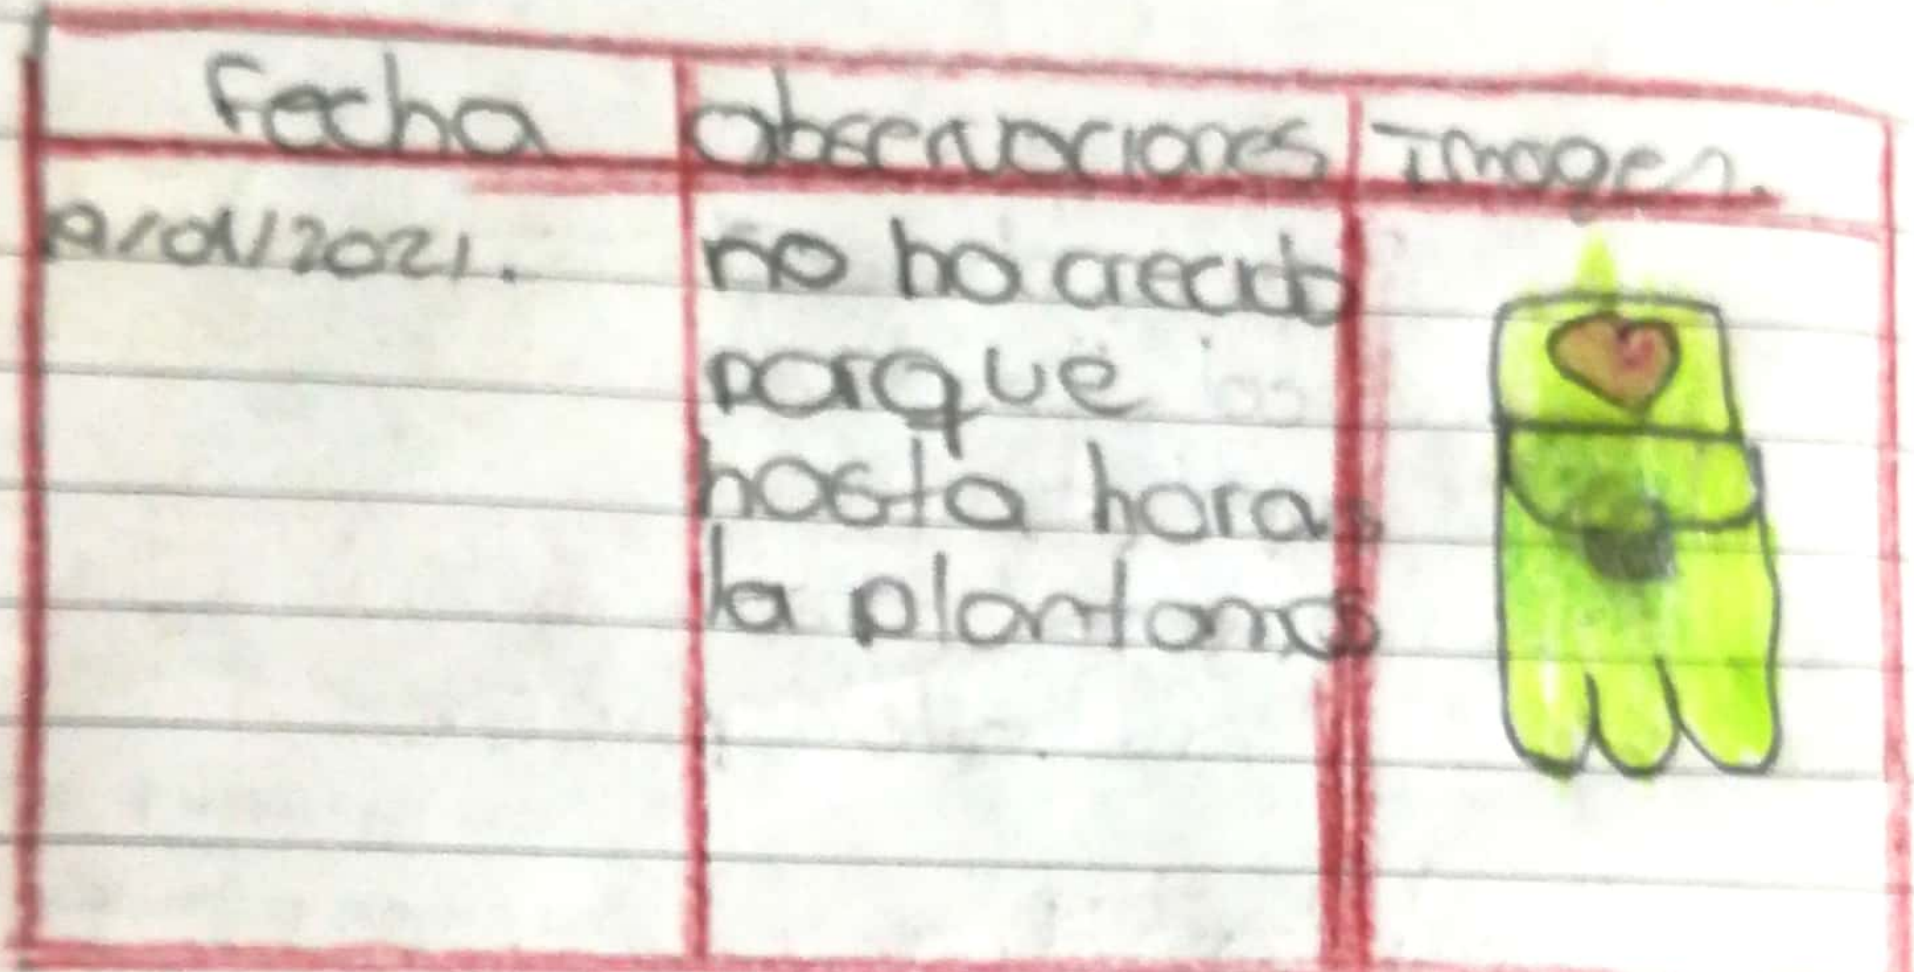 Fecha observaciones Imagen.
/01/2021.
no ha crecido
porque
hasta horas
la plantamos